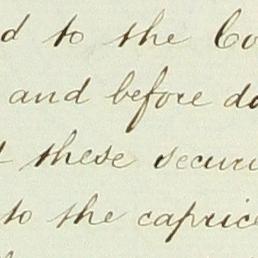 d to the Co
and before d
these securi
to the caprice